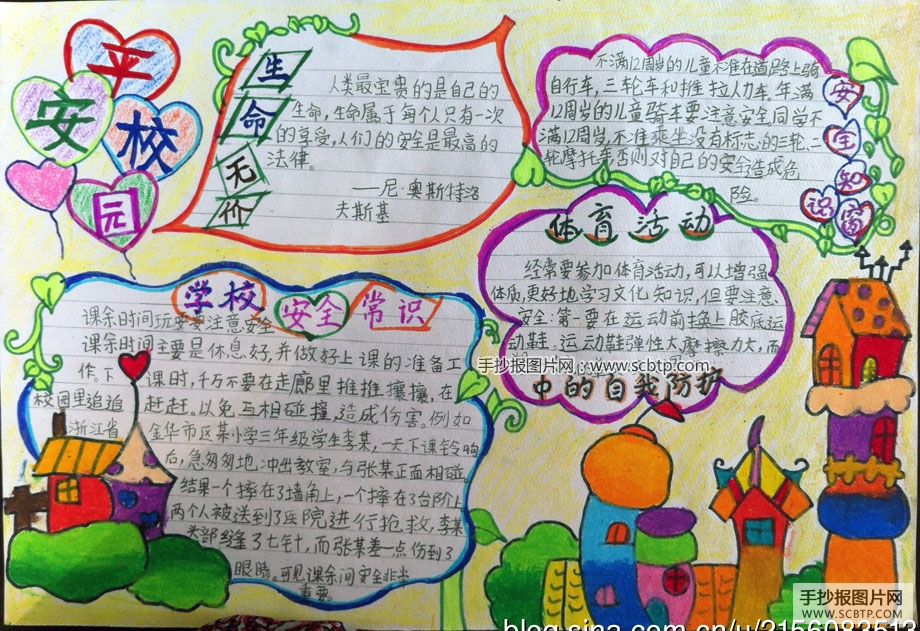 平
安
校
园
生
命
无
价
人类最宝贵的是自己的
生命,生命属于每个人只有一次
的享受,人们的安全是最高的
法律。
——尼·奥斯特洛
夫斯基
不满12周岁的儿童不准在道路上骑
自行车,三轮车和推拉人力车。年满
12周岁的儿童骑车要注意安全同学不
满12周岁,不准乘坐没有标志的三轮、二
轮摩托车否则对自己的安全造成危
险。
安
全
知
识
窗
体育活动
经常要参加体育活动,可以增强
体质,更好地学习文化知识,但要注意
安全:第一要在运动前换上胶底运
动鞋。运动鞋弹性大摩擦力大,而
手抄报图片网 www.scbtp.com
中的自我防护
学校安全常识
课余时间玩耍要注意安全
课余时间主要是休息好,并做好上课的准备工
作。下课时,千万不要在走廊里推推攘攘,在
校园里追追赶赶。以免互相碰撞,造成伤害。例如
浙江省金华市区某小学三年级学生李某,一天下课铃响
后,急匆匆地冲出教室,与张某正面相碰。
结果一个摔在了墙角上,一个摔在了台阶上
两个人被送到了医院进行抢救,李某
头部缝了七针,而张某差一点伤到了
眼睛。可见课余间安全非常
重要。
手抄报图片网
WWW.SCBTP.COM
blog.sina.com.cn/u/2156083513